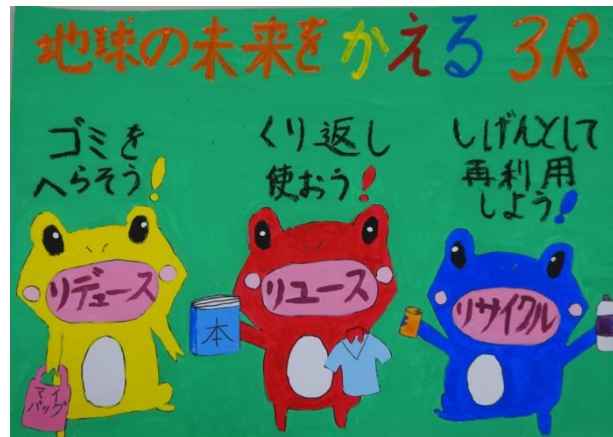 地球の未来をかえる3R
ゴミを
へらそう!
くり返し
使おう!
しげんとして
再利用
しよう!
リデュース
リユース
リサイクル
本
マイ
バッグ